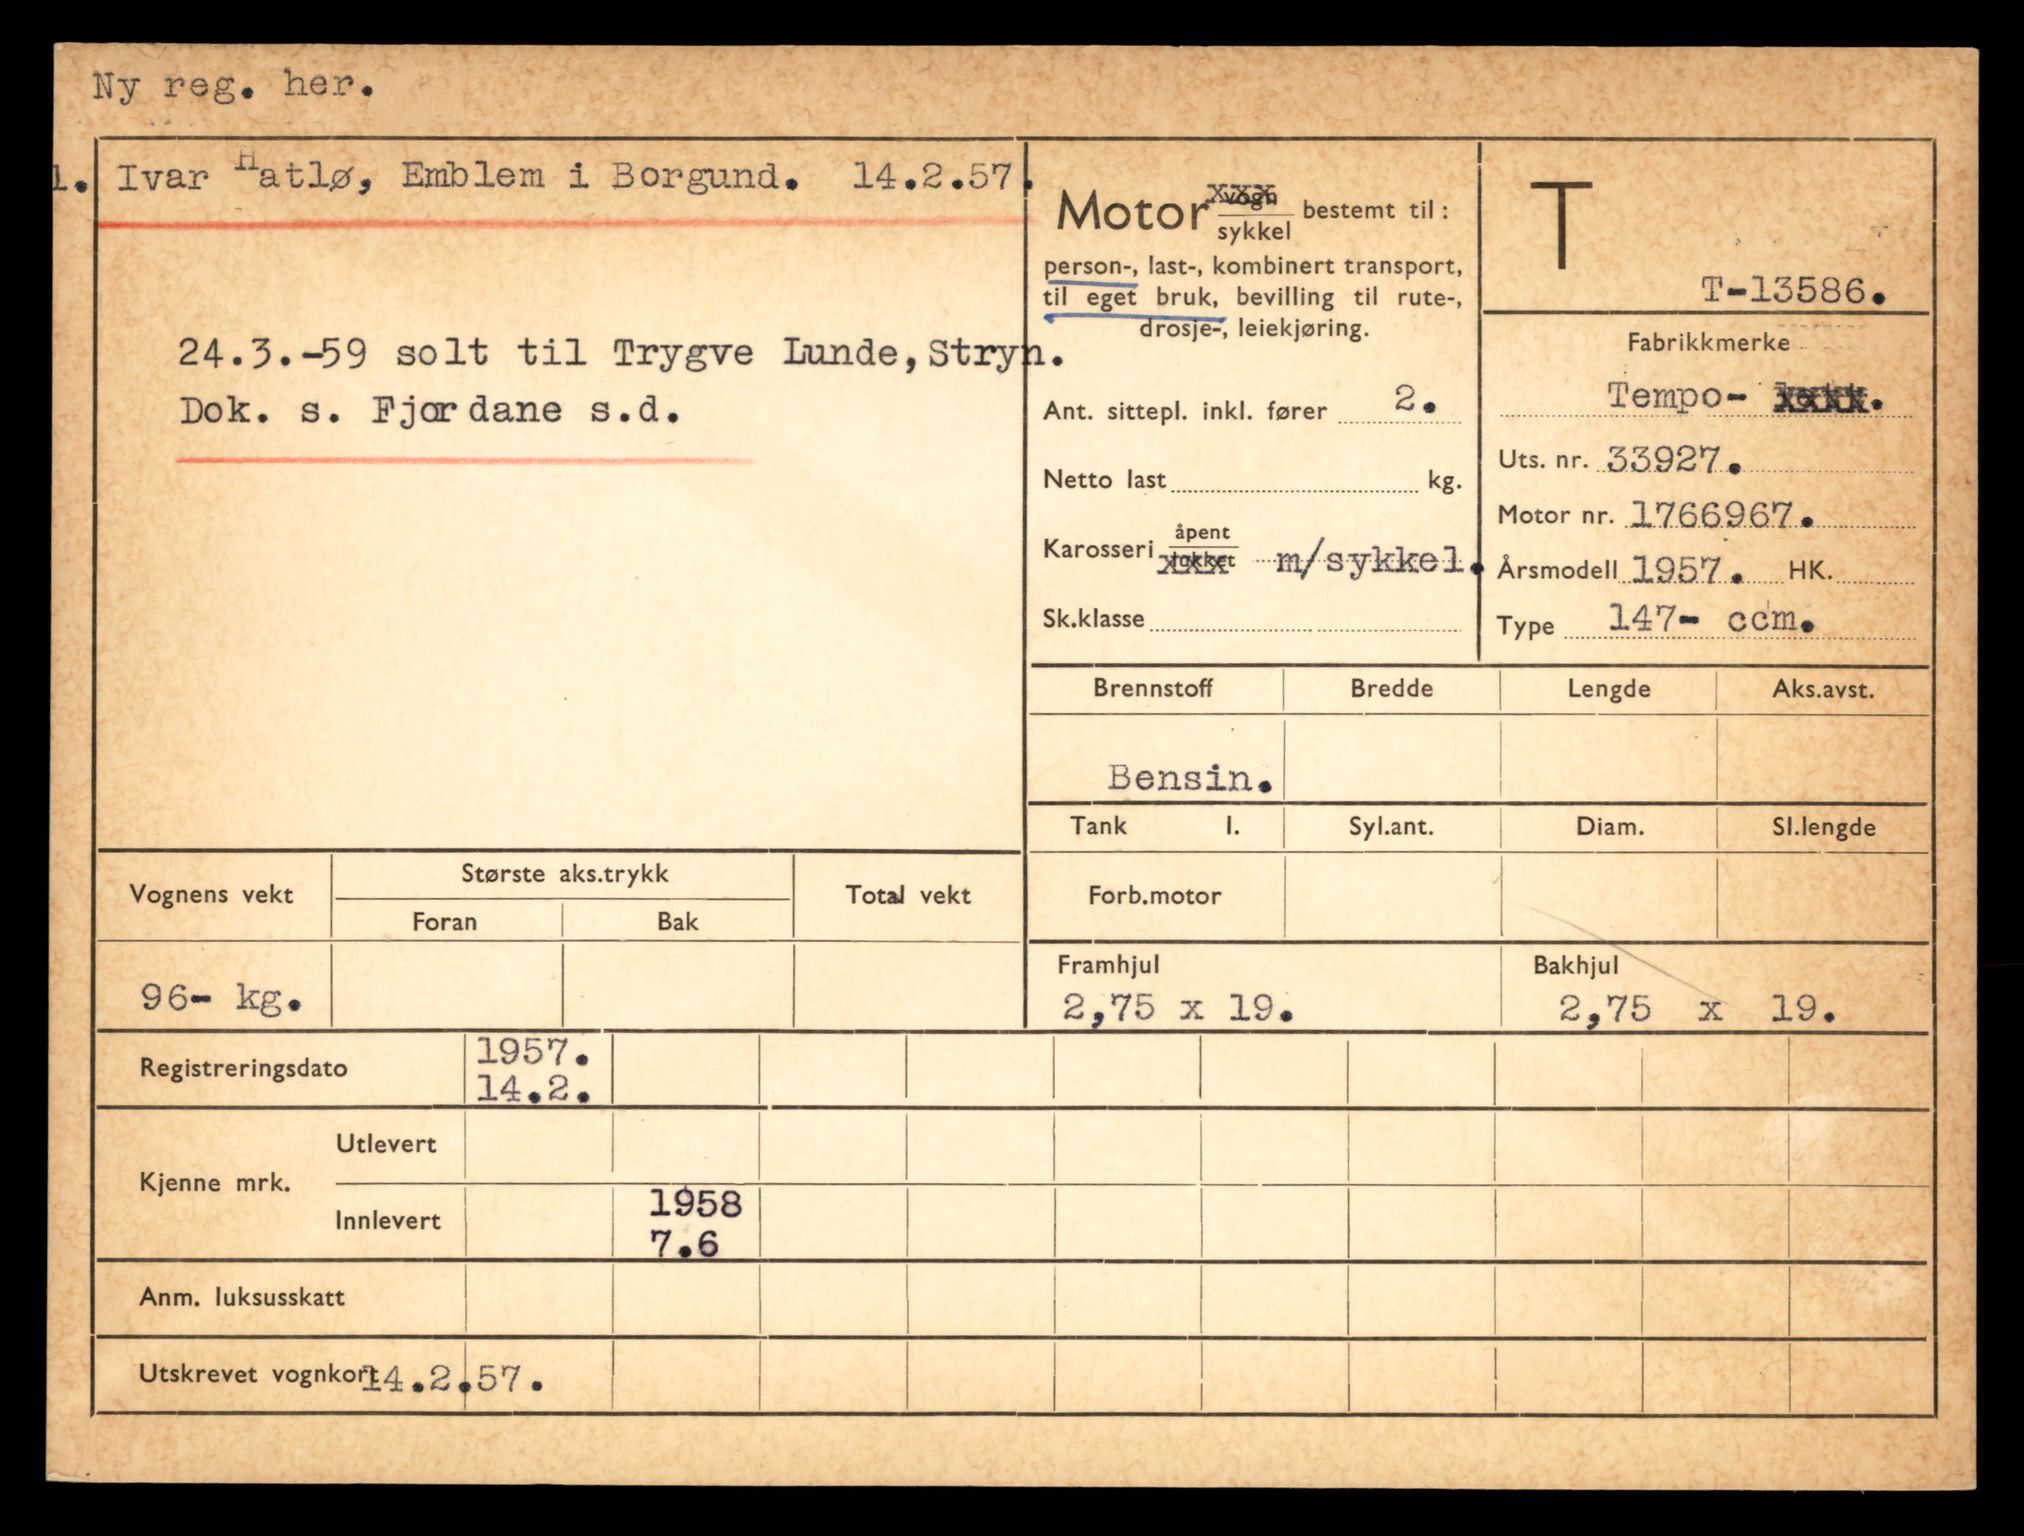 Ny reg. her.
1. Ivar Hatlø, Emblem i Borgund. 14.2.57.
24.3.-59 solt til Trygve Lunde, Stryn.
Dok. s. Fjordane s.d.
Motor vogn/sykkel bestemt til:
person-, last-, kombinert transport,
til eget bruk, bevilling til rute-,
drosje-, leiekjøring.
Ant. sittepl. inkl. fører 2.
Netto last kg.
Karosseri åpent/lukket m/sykkel.
Sk.klasse
T
T-13586.
Fabrikkmerke
Tempo-
Uts. nr. 33927.
Motor nr. 1766967.
Årsmodell 1957. HK.
Type 147- ccm.
Brennstoff Bredde Lengde Aks.avst.
Bensin.
Tank l. Syl.ant. Diam. Sl.lengde
Forb.motor
Framhjul Bakhjul
2,75 x 19. 2,75 x 19.
Vognens vekt Største aks.trykk Total vekt
Foran Bak
96- kg.
Registreringsdato 1957.
14.2.
Kjenne mrk. Utlevert
Innlevert 1958
7.6
Anm. luksusskatt
Utskrevet vognkort 14.2.57.